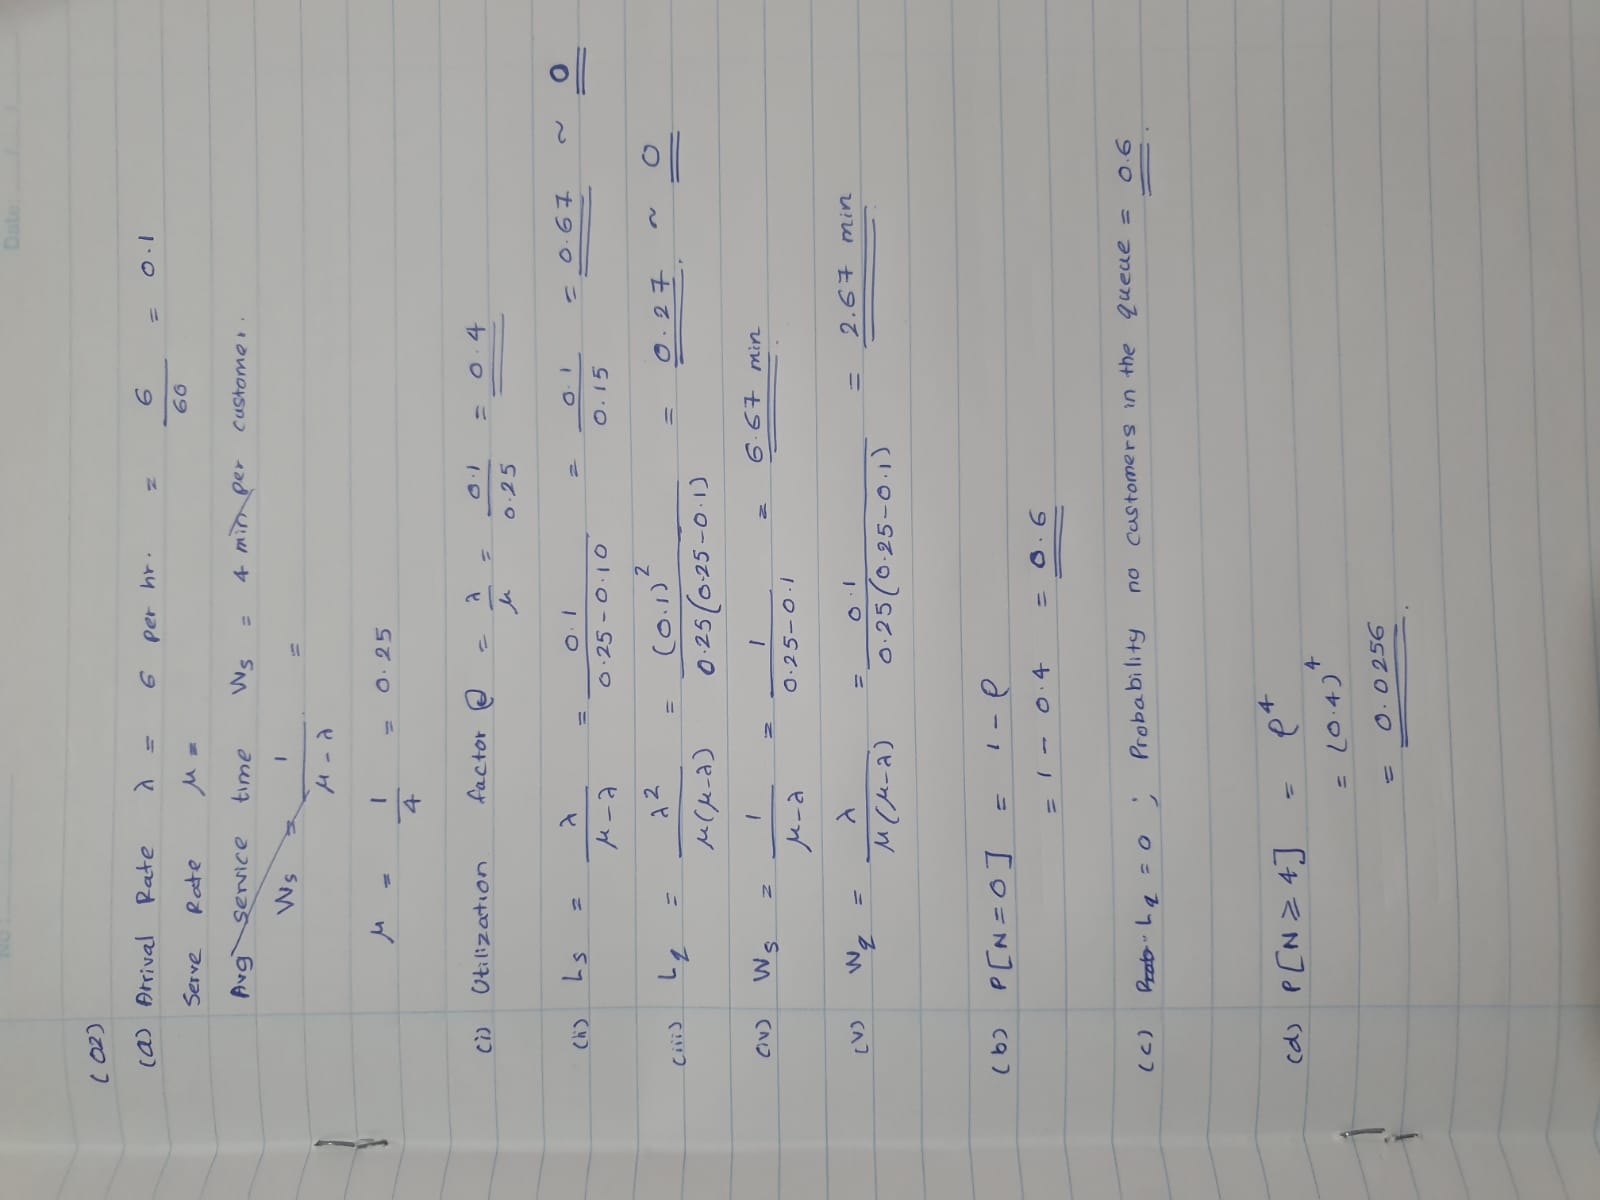 Date:
No:
(02)
(a) Arrival Rate λ = 6 per hr. = 6/60 = 0.1
Serve Rate μ =
Avg service time Ws = 4 min per customer.
Ws = 1/(μ-λ) =
μ = 1/4 = 0.25
(i) Utilization factor ρ = λ/μ = 0.1/0.25 = 0.4
(ii) Ls = λ/(μ-λ) = 0.1/(0.25-0.10) = 0.1/0.15 = 0.67 ~ 0
(iii) Lq = λ²/(μ(μ-λ)) = (0.1)²/(0.25(0.25-0.1)) = 0.27. ~ 0
(iv) Ws = 1/(μ-λ) = 1/(0.25-0.1) = 6.67 min.
(v) Wq = λ/(μ(μ-λ)) = 0.1/(0.25(0.25-0.1)) = 2.67 min.
(b) P[N=0] = 1-ρ
= 1 - 0.4 = 0.6
(c) Lq = 0 ; Probability no customers in the queue = 0.6.
(d) P[N ≥ 4] = ρ⁴
= (0.4)⁴
= 0.0256.